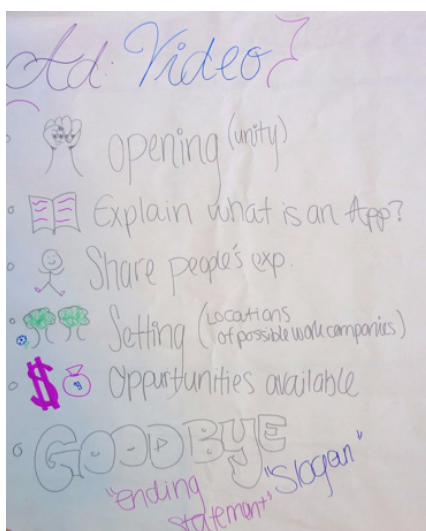 Ad: Video
opening (unity)
Explain what is an App?
Share people's exp.
Setting (Locations
of possible work companies)
$ Oppurtunities available
GOODBYE
"ending
statement" "Slogan"